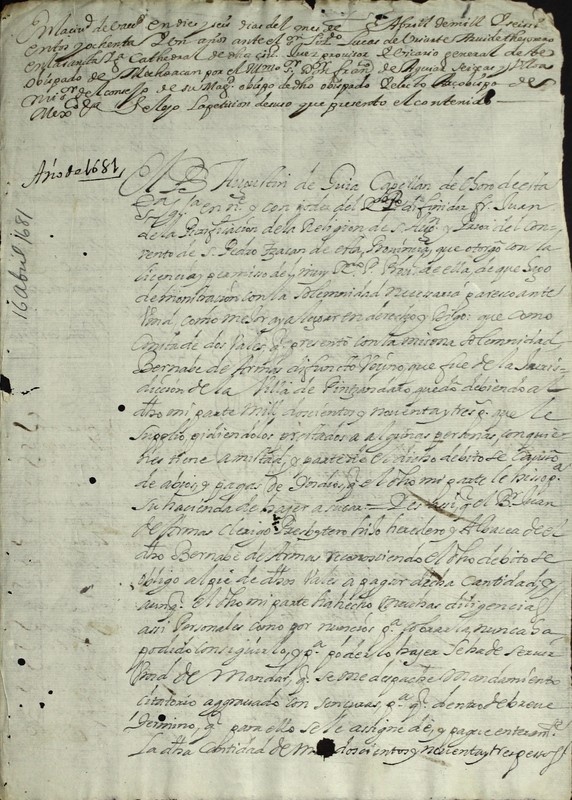 En la ciud. de Vallid. en diez y seis dias del mes de Abril de mill seiscit
entos y ochenta y un años ante el Sr. Lizdo. Lucas de Uriarte
en la santa Ia. Cathedral de esta ciud. Juez provisor y Vicario general de este
obispado de Mechoacan por el Illmo. Sr. D. Franco. de Aguiar Seixas y Ulloa
mi Sr. del consejo de su Magd. obispo de dho obispado electo Arçobispo de
Mexco. Se leyo la peticion de uso que presento el contenido
Año de 1681
16 abril 1681
El B. Augustin de Guia Capellan del choro de esta
Sta. Iga. en no. y con poder del Difinidor fr. Juan
de la Purificacion de la Religion de S. Augn. y Prior del Con
vento de S. Pedro Tzacan de esta Provincia que otorgo con la
licencia y permiso del muy Rdo. P. Provl. de ella, de que hago
demonstracion con la solemnidad necessaria paresco ante
Vmd. como mejor aya lugar en derecho y digo: que como
consta de dos Vales q. presento con la misma solemnidad
Bernabe de Armas difuncto Vezino que fue de la Jurisdi
diccion de la Villa de Pintzandaro quedo debiendo al
dho mi parte mill, doscientos y noventa y tres ps. que le
suplio pidiendolos prestados a algunas personas con quie
nes tiene amistad, y parte de
de aves y pagas de q. el dho mi parte le hiso pa.
su hacienda de Y es assi q. el Br. Juan
de Armas clerigo Presbytero hijo heredero y Albacea de el
dho Bernabe de Armas reconosciendo el dho debito se
obligo al pie de dhos Vales a pagar dicha Cantidad, y
aunq. el dho mi parte ha hecho muchas diligencias
assi Personales como por nuncios pa. cobrarla, nunca ha
podido conseguirlo, y pa. poderlo haser se ha de servir
Vmd. de Mandar, q. se me despache Mandamiento
Citatorio aggravado con sensuras, pa. q. dentro de breve
termino, q. para ello se le assigne dé, y pague enteramte.
La dha Cantidad de mil doscientos y noventa y tres pesos